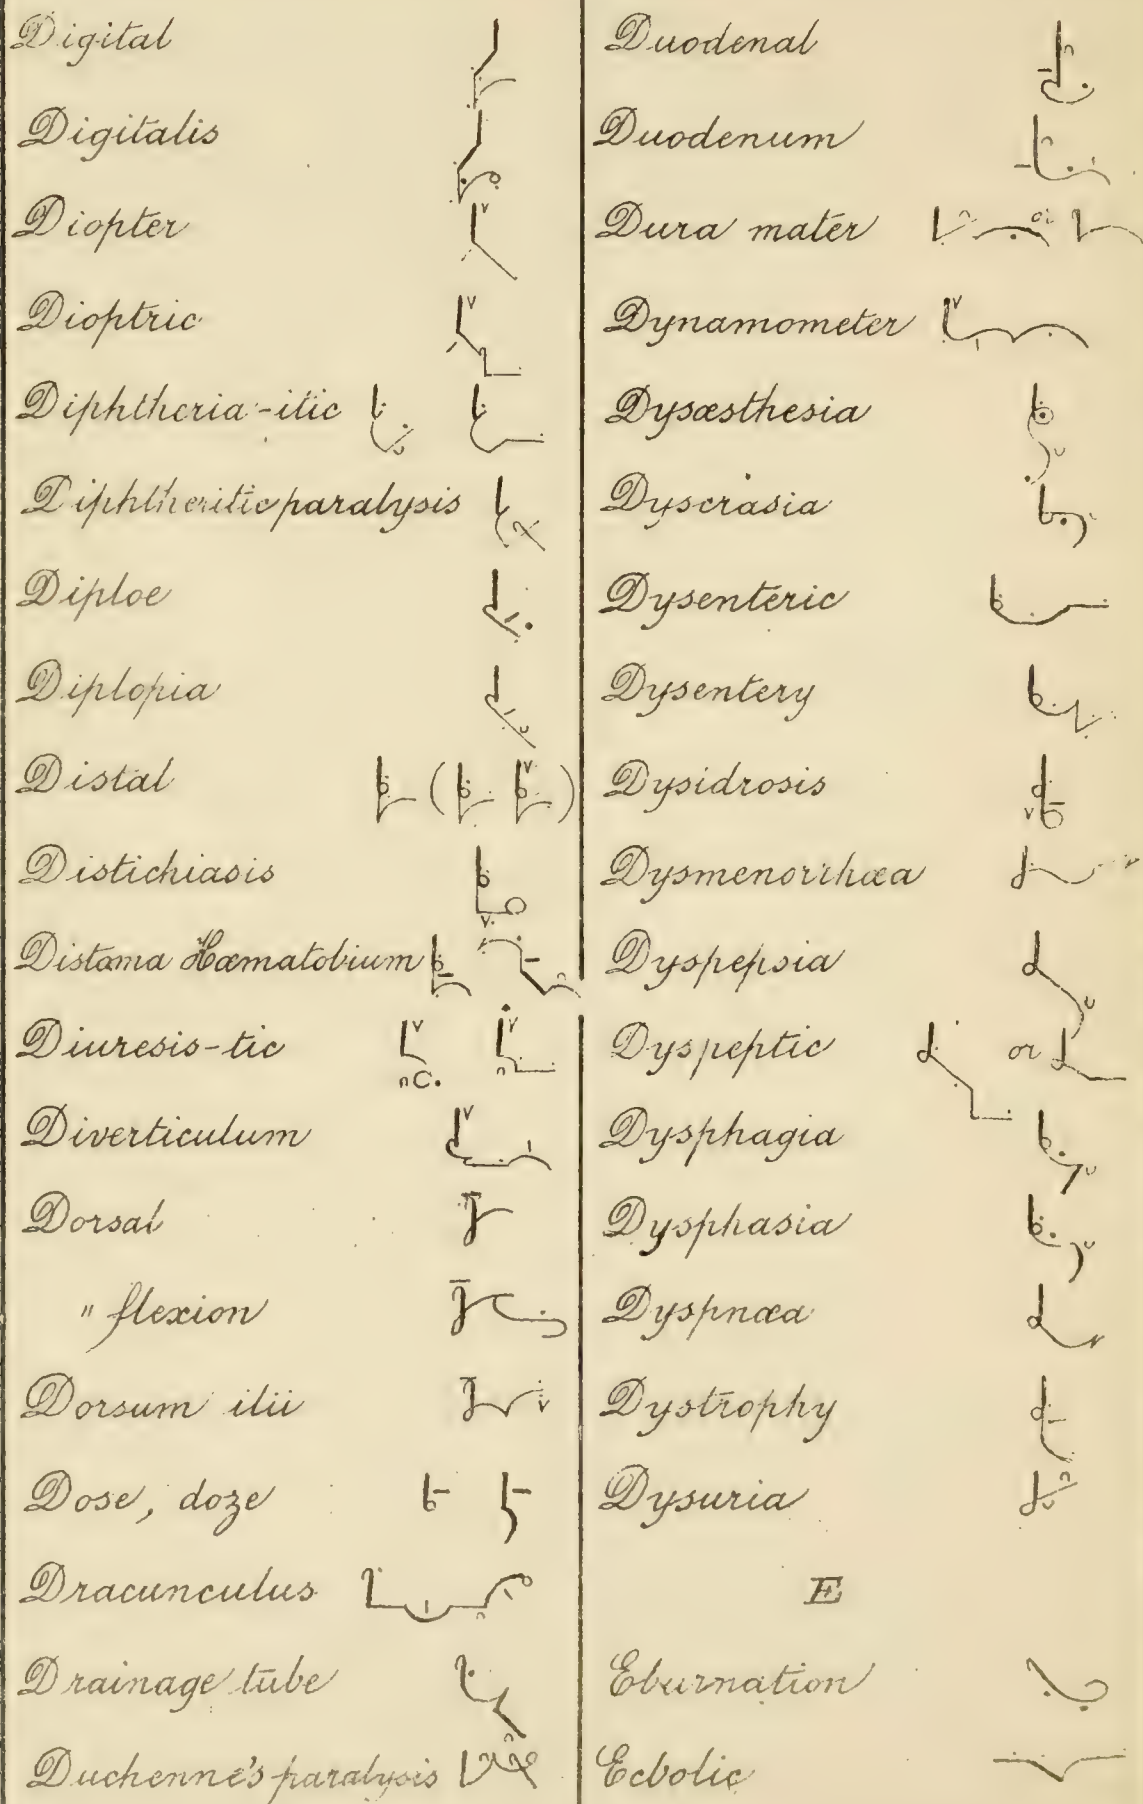 Digital
Digitalis
Diopter
Dioptric
Diphtheria-itic
Diphtheritic paralysis
Diploe
Diplopia
Distal ( )
Distichiasis
Distoma Hæmatobium
Diuresis-tic
Diverticulum
Dorsal
" flexion
Dorsum ilii
Dose, doze
Dracunculus
Drainage tube
Duchenne's paralysis
Duodenal
Duodenum
Dura mater or
Dynamometer
Dysæsthesia
Dyscrasia
Dysenteric
Dysentery
Dysidrosis
Dysmenorrhœa
Dyspepsia
Dyspeptic or
Dysphagia
Dysphasia
Dyspnœa
Dystrophy
Dysuria
E
Eburnation
Ecbolic